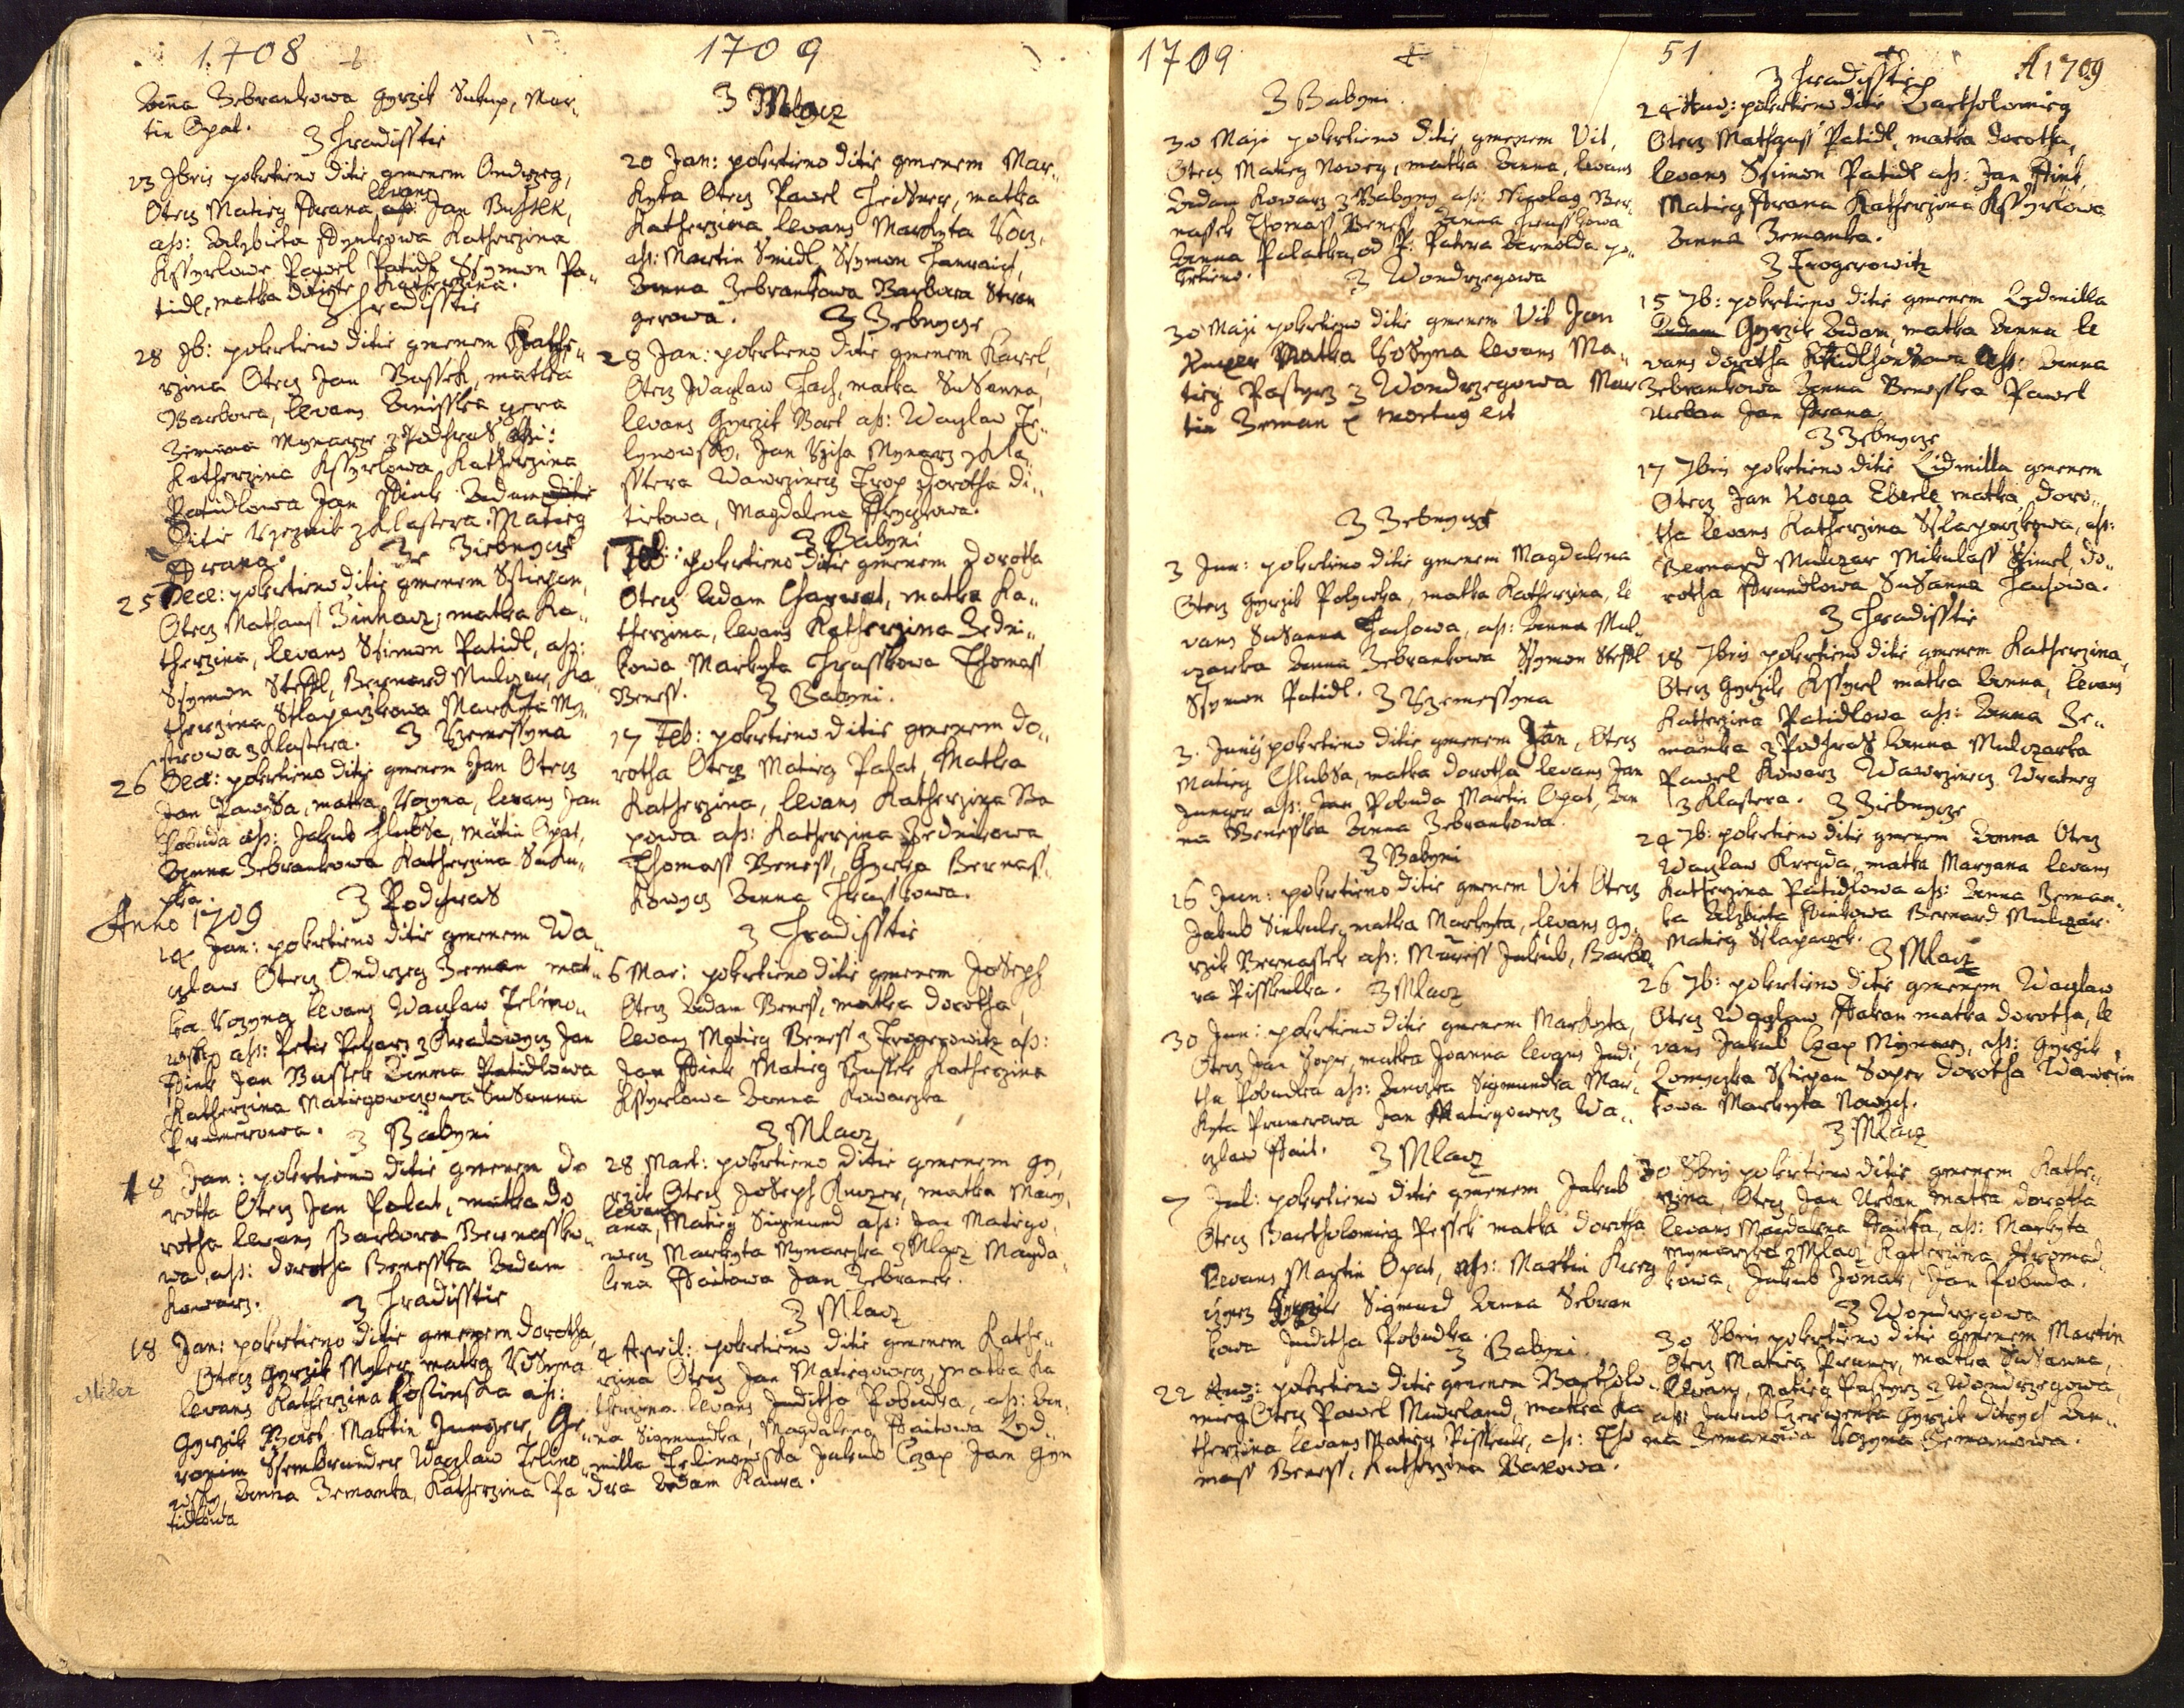 1708
Anna Zebrankowa Gyrzik Sukup, Mar-
tin Opat.
Z Hradisstie
23 9bris pokrtieno ditie gmenem Ondrzeg,
Otecz Matieg Frana, levans Jan Bussek,
ass: Alzbieta Fynkowa Katherzina
Kssyrlowe Pawel Patidl Ssymon Pa-
tidl, matka ditiete Katherzina.
Z Hradisstie
28 9b: pokrtieno ditie gmenem Kathe-
rzina Otecz Jan Bussek, matka
Barbora, levans
Mynarze z Podhrad ass:
Katherzina Kssyrlowa Katherzina
Patidlowa Jan Fink Adam ditie
ditie z Klastera. Matieg
Frana.
Ze Ziebnycze
25 Dece: pokrtieno ditie gmenem Sstiepan,
Otecz Mathauss matka Ka-
therzina, levans Ssimon Patidl, ass:
Ssymon Steffl, Bernard Mulczar, Ka-
therzina Sslapaczkowa Markyta My-
z Klastera.
Z Uzemessyna
26 Dece: pokrtieno ditie gmenem Jan Otecz
Jan matka Rozyna, levans Jan
Pobuda ass: Jakub Hlubsa, Matin Opat,
Anna Zebrankowa Katherzina Suku-
pka.
Anno 1709
Z Podhrad
14 Jan: pokrtieno ditie gmenem Wa-
czlaw Otecz Ondrzeg Zeman mat-
ka Rozyna levans Waczlaw Zelino-
wsky ass: Petr z Hradowycz Jan
Fink Jan Bussek Anna Patidlowa
Katherzina Matiegowczowa Susanna
Prunerowa.
Z Babyni
18 Jan: pokrtieno ditie gmenem Do
rotha Otecz Jan Palat, matka Do
rotha levans Barbora Bernassko-
wa, ass: Dorotha Benesska Adam
Kowarz.
Z Hradisstie
18 Jan: pokrtieno ditie gmenem Dorotha,
Otecz Gyrzik Myler matka Rosyna
Miler
levans Katherzina Hostinska ass:
Gyrzik Bart Martin Junger, Ge-
ronim Ssembrunder Waczlaw Zelino-
wsky, Anna Zemanka, Katherzina Pa
tidlowa
1709
Z Mlacz
20 Jan: pokrtieno ditie gmenem Mar-
kyta Otecz Pawel matka
Katherzina levans Markyta
ass: Martin Smidl, Ssymon
Anna Zebrankowa Barbora Stran
gerowa.
Z Zebnycze
28 Jan: pokrtieno ditie gmenem Karel,
Otecz Waczlaw Hach, matka Susanna,
levans Gyrzik Bart ass: Waczlaw Ze-
lynowsky, Jan Mynarz z Kla-
sstera Wawrzinecz Trop Dorotha Di-
tietowa, Magdalena
Z Babyni
1 Feb: pokrtieno ditie gmenem Dorotha
Otecz Adam Charwat, matka Ka-
therzina, levans Katherzina Zedni-
kowa Markyta Hrasskowa Thomass
Beness.
Z Babyni.
17 Feb: pokrtieno ditie gmenem Do-
rotha Otecz Matieg Palat, Matka
Katherzina, levans Katherzina Ba
powa ass: Katherzina Zednikowa
Thomass Beness, Gyrka Bernass-
kowycz Anna Hrasskowa.
Z Hradisstie
6 Mar: pokrtieno ditie gmenem Joseph
Otecz Adam Beness, matka Dorotha,
levans Matieg Beness z Trogerowitz ass:
Jan Fink Matieg Bussek Katherzina
Kssyrlowa Anna Kowarzka
Z Mlacz
28 Mart: pokrtieno ditie gmenem Gy-
rzik Otecz Joseph Knozer, matka Mary-
levans
ana, Matieg Sigmund ass: Jan Matiego-
wecz Markyta Mynarzka z Mlacz Magda-
lena Faitowa Jan Zebranek.
Z Mlacz
4 April: pokrtieno ditie gmenem Kathe-
rzina Otecz Jan Matiegowecz, matka Ka
therzina levans Juditha Pobudka, ass: An-
na Sigmundka, Magdalena Faitowa Lyd-
milla Zelinowska Jakub Czap Jan Gyn
dra Adam Kaura.
1709
Z Babyni.
30 Maji pokrtieno ditie gmenem Vit,
Otecz Matieg Nowey, matka Anna, levans
Adam Kowarz z Babyny ass: Nicolas Ber-
nassek Thomass Beness, Anna Hrasskowa
Anna Palatka, od P: Patera Arnolda po-
krtieno.
Z Wondrzegowa
30 Maji pokrtieno ditie gmenem Vit Jan
Kniger Matka Rosyna levans Ma-
tieg Pastyrz z Wondrzegowa Mar
tin Zeman e mortuus est
Z Zebnycze
3 Jun: pokrtieno ditie gmenem Magdalena
Otecz Gyrzik Polywka, matka Katherzina, le
vans Susanna Hachowa, ass: Anna Mul-
czarka Anna Zebrankowa Ssymon Steffl
Ssymon Patidl.
Z Uzemessyna
3. Junij pokrtieno ditie gmenem Jan, Otecz
Matieg Hlubsa, matka Dorotha levans Jan
Junger ass: Jan Pobuda Martin Opat, An
na Benesska Anna Zebrankowa.
Z Babyni
16 Jun: pokrtieno ditie gmenem Vit Otecz
Jakub Sinkule, matka Markyta, levans Gy-
rzik Bernassek ass: Maress Jakub, Barbo-
ra Pisskulka.
Z Mlacz
30 Jun: pokrtieno ditie gmenem Markyta,
Otecz Jan Soper, matka Joanna levans Judi-
tha Pobudka ass: Anczka Sigmundka Mar-
kyta Prunerowa Jan Matiegowecz Wa-
czlaw Fait.
Z Mlacz
7 Jul: pokrtieno ditie gmenem Jakub
Otecz Bartholomieg Pessek matka Dorotha
levans Martin Opat, ass: Martin
Gyrzik Sigmund Anna Sebran
kowa Juditha Pobudka.
Z Babyni.
22 Aug: pokrtieno ditie gmenem Bartholo-
mieg Otecz Pawel Mudrland, matka Ka
therzina levans Matieg Pisskule, ass: Tho
mass Beness, Katherzina Bapowa.
51
A 1709
Z Hradisstie
24 Aug: pokrtieno ditie Bartholomieg
Otecz Mathauss Patidl, matka Dorotha,
levans Ssimon Patidl ass: Jan Fink,
Matieg Frana Katherzina Kssyrlowa
Anna Zemanka.
Z Trogerowitz
15 7b: pokrtieno ditie gmenem Lydmilla
Adam Gyrzik Adam, matka Anna le
vans Dorotha ass: Anna
Zebrankowa Anna Benesska Pawel
Urban Jan Frana.
Z Zebnycze
17 7bris pokrtieno ditie Lidmilla gmenem
Otecz Jan Eberle matka Doro-
tha levans Katherzina Sslapaczkowa, ass:
Bernard Mulczar Mikulass Do-
rotha Frundlowa Susanna Hachowa.
Z Hradisstie
18 7bris pokrtieno ditie gmenem Katherzina,
Otecz Gyrzik Kssyrl matka Anna, levans
Katherzina Patidlowa ass: Anna Ze-
manka z Podhrad Anna Mulczarka
Pawel Kowarz Wawrzinecz Wratneg
z Klastera.
Z Ziebnycze
24 7b: pokrtieno ditie gmenem Anna Otecz
Waczlaw Kregda, matka Maryana levans
Katherzina Patidlowa ass: Anna Zeman-
ka Alzbieta Finkowa Bernard Mulczar.
Matieg Sslapaczek.
Z Mlacz
26 7b: pokrtieno ditie gmenem Waczlaw
Otecz Waczlaw matka Dorotha, le
vans Jakub Czap Mynarz, ass: Gyrzik
Sstiepan Soper Dorotha Wawrzin
kowa Markyta Nowych.
Z Mlacz
30 8bris pokrtieno ditie gmenem Kathe-
rzina, Otecz Jan Urban matka Dorotha
levans Magdalena Faitka, ass: Markyta
Mynarzka z Mlacz Katherzina Hromad-
kowa, Jakub Jonak, Jan Pobuda.
Z Wondrzegowa
30 8bris pokrtieno ditie gmenem Martin
Otecz Matieg Pruner, matka Susanna,
levans, Matieg Pastyrz z Wondrzegowa,
ass: Jakub Czerwenka Gyrzik Ditrych An-
na Zemanowa Rozyna Zemanowa.